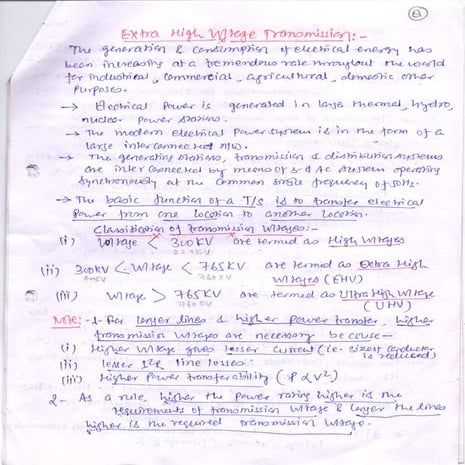 Extra High Voltage Transmission:-
The generation & consumption of electrical energy has
been increasing at a tremendous rate throughout the world
for industrial, commercial, agricultural, domestic other
purposes.
→ Electrical Power is generated in large thermal, hydro,
nuclear power stations.
→ The modern electrical Power system is in the form of a
large interconnected N/W.
→ The generating stations, transmission & distribution systems
are interconnected by means of 3-ϕ AC system operating
synchronously at the common single frequency of 50Hz.
→ The basic function of a T/S is to transfer electrical
Power from one location to another location.
Classification of transmission voltages:-
(i) Voltage < 300KV are termed as High voltages
220KV
(ii) 300KV < Voltage < 765KV are termed as Extra High
760KV
Voltages (EHV)
(iii) Voltage > 765KV are termed as Ultra High Voltage
760KV
(UHV)
Note:- 1- For longer lines & higher power transfer, higher
transmission voltages are necessary because-
(i) Higher voltage gives lesser current (i.e. size of conductor
is reduced)
(ii) lesser I²R line losses.
(iii) Higher Power transferability (P ∝ V²)
2- As a rule, higher the power rating higher is the
requirements of transmission voltage & longer the lines
higher is the required transmission voltage.